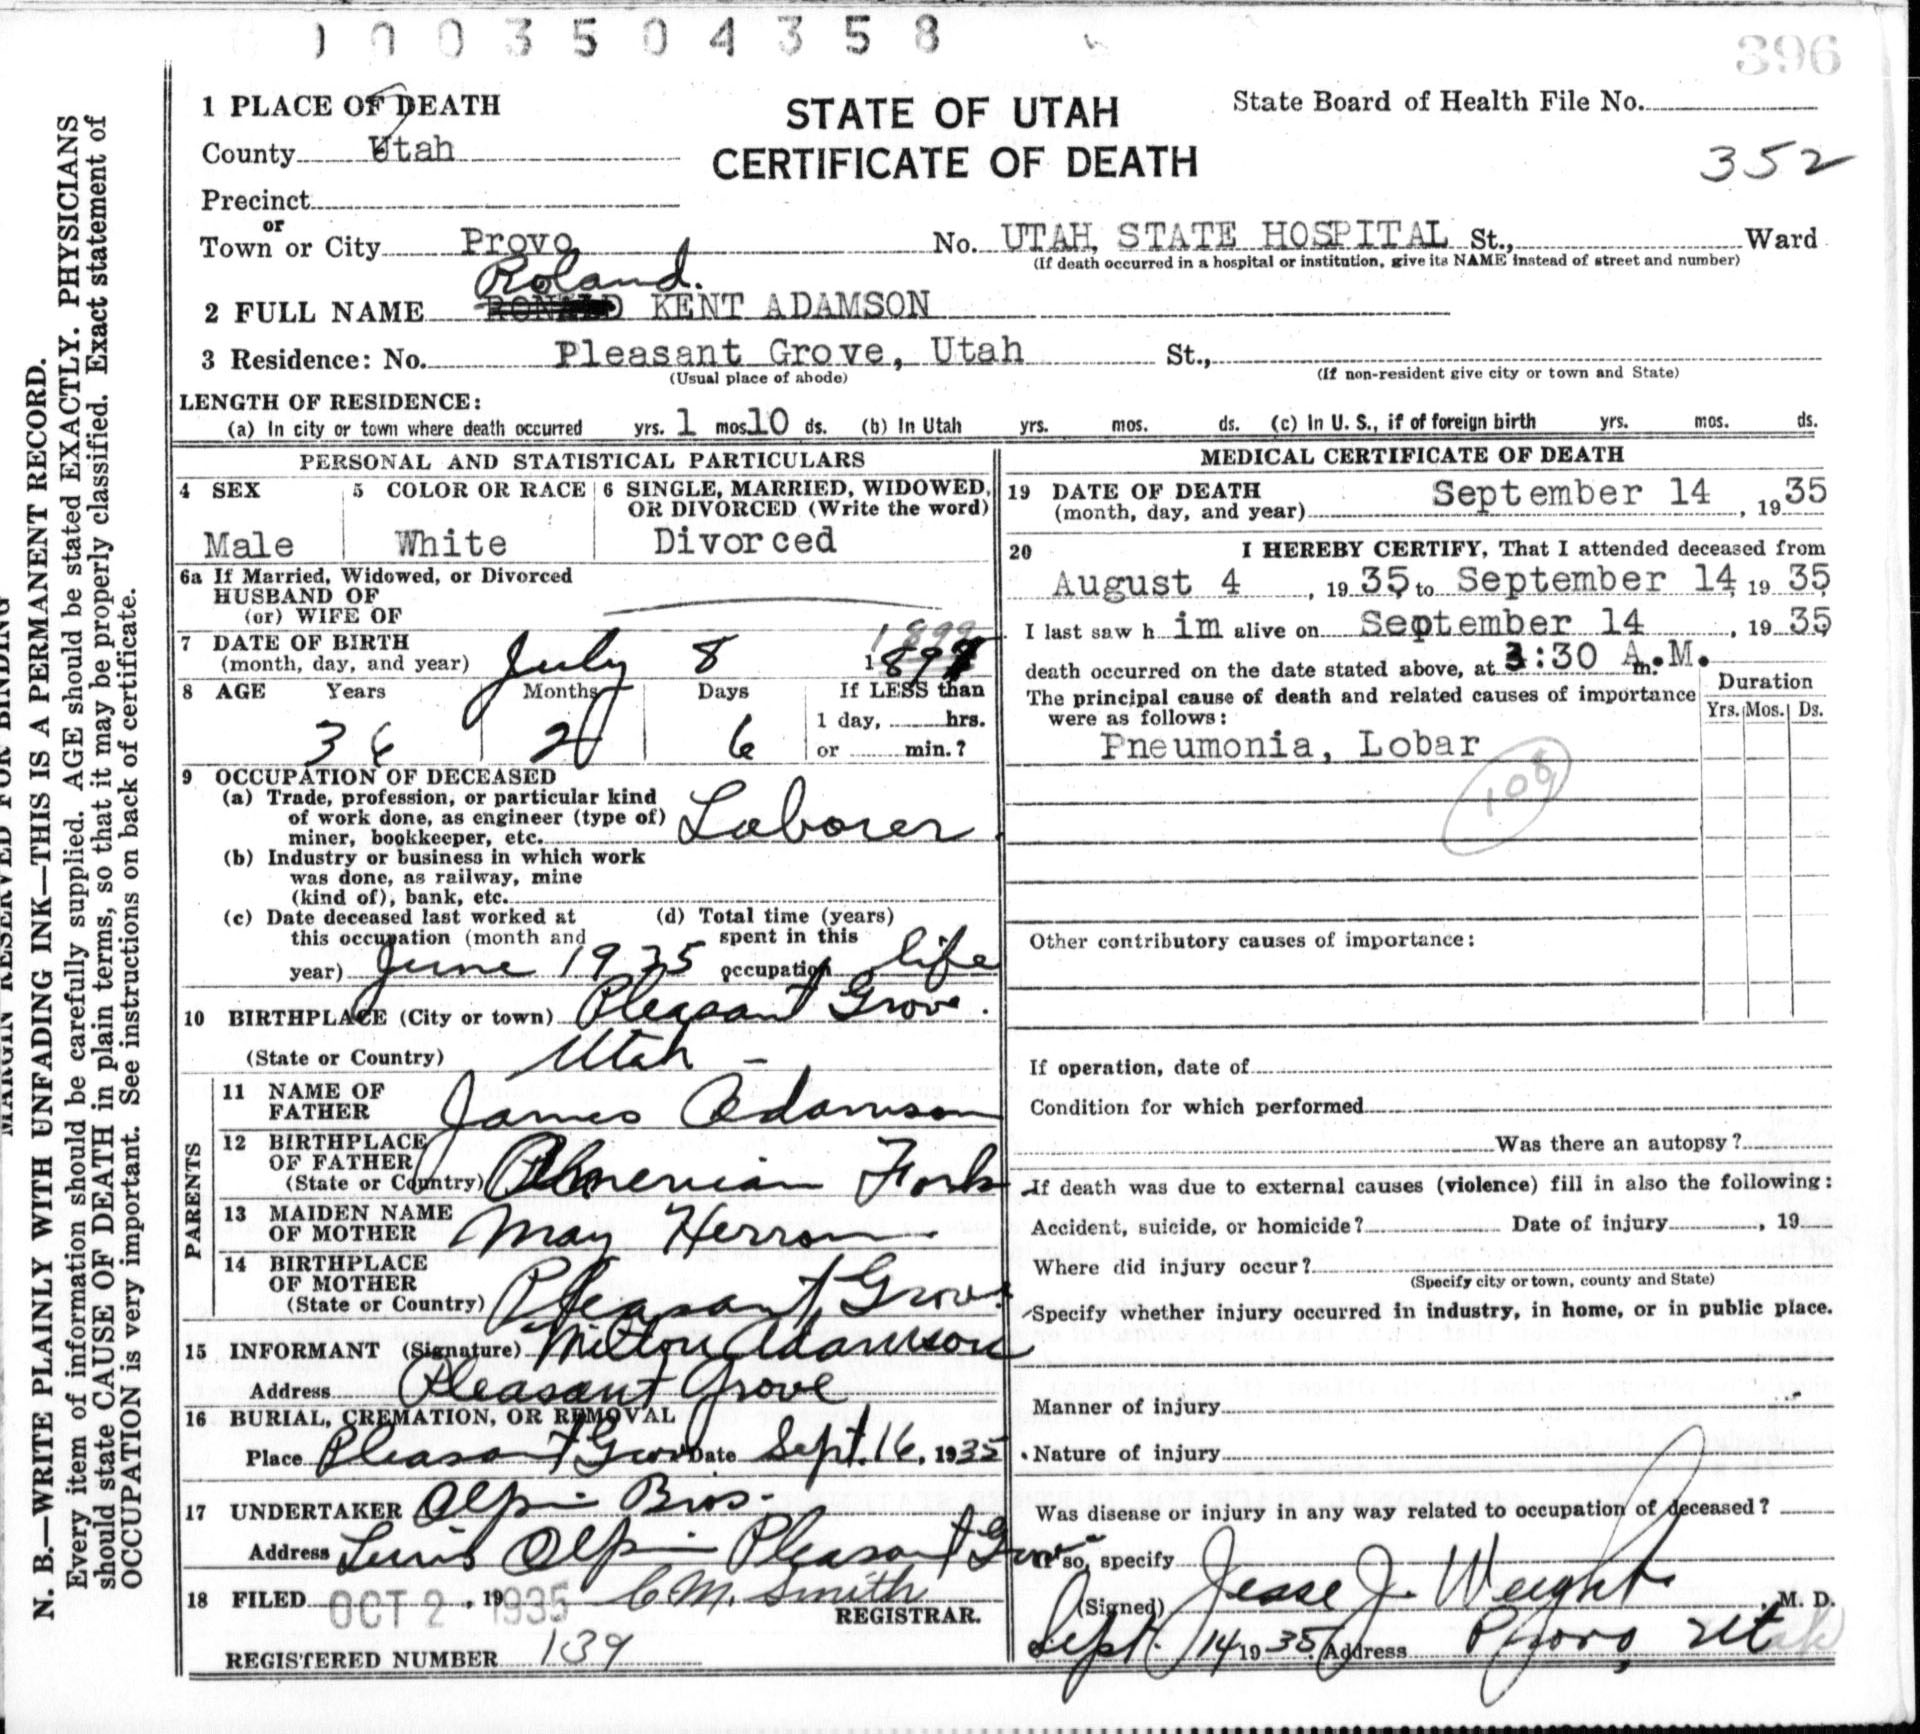 0003504358
396
1 PLACE OF DEATH
STATE OF UTAH
CERTIFICATE OF DEATH
State Board of Health File No.
352
County Utah
Precinct
or
Town or City Provo No. UTAH STATE HOSPITAL St., Ward
(If death occurred in a hospital or institution, give its NAME instead of street and number)
Roland.
2 FULL NAME RONALD KENT ADAMSON
3 Residence: No. Pleasant Grove, Utah St.,
(Usual place of abode) (If non-resident give city or town and State)
LENGTH OF RESIDENCE:
(a) In city or town where death occurred yrs. 1 mos. 10 ds. (b) In Utah yrs. mos. ds. (c) In U. S., if of foreign birth yrs. mos. ds.
PERSONAL AND STATISTICAL PARTICULARS
4 SEX 5 COLOR OR RACE 6 SINGLE, MARRIED, WIDOWED,
OR DIVORCED (Write the word)
Male White Divorced
6a If Married, Widowed, or Divorced
HUSBAND OF
(or) WIFE OF
1899
7 DATE OF BIRTH
(month, day, and year) July 8 189
8 AGE Years Months Days If LESS than
1 day, hrs.
36 2 6 or min.?
9 OCCUPATION OF DECEASED
(a) Trade, profession, or particular kind
of work done, as engineer (type of)
miner, bookkeeper, etc. Laborer
(b) Industry or business in which work
was done, as railway, mine
(kind of), bank, etc.
(c) Date deceased last worked at (d) Total time (years)
this occupation (month and spent in this
year) June 1935 occupation life
10 BIRTHPLACE (City or town) Pleasant Grove.
(State or Country) Utah -
PARENTS
11 NAME OF
FATHER James Adamson
12 BIRTHPLACE
OF FATHER
(State or Country) Fork
13 MAIDEN NAME
OF MOTHER May Herron
14 BIRTHPLACE
OF MOTHER
(State or Country) Pleasant Grove
15 INFORMANT (Signature) Milton Adamson
Address Pleasant Grove
16 BURIAL, CREMATION, OR REMOVAL
Place Pleasant Grove Date Sept. 16, 1935
17 UNDERTAKER Olpin Bros.
Address Olpin Pleasant Grove
18 FILED OCT 2, 19 1935 C M. Smith
REGISTRAR.
REGISTERED NUMBER 139
MEDICAL CERTIFICATE OF DEATH
19 DATE OF DEATH
(month, day, and year) September 14, 1935
20 I HEREBY CERTIFY, That I attended deceased from
August 4, 1935 to September 14, 1935
I last saw him alive on September 14, 1935
death occurred on the date stated above, at :30 A.M. m.
The principal cause of death and related causes of importance
were as follows:
Duration
Yrs. Mos. Ds.
Pneumonia, Lobar
108
Other contributory causes of importance:
If operation, date of
Condition for which performed
Was there an autopsy?
If death was due to external causes (violence) fill in also the following:
Accident, suicide, or homicide? Date of injury, 19
Where did injury occur?
(Specify city or town, county and State)
Specify whether injury occurred in industry, in home, or in public place.
Manner of injury
Nature of injury
Was disease or injury in any way related to occupation of deceased?
If so, specify
(Signed) Jesse J. Weight, M. D.
Sept. 14 1935 Address Provo, Utah
MARGIN RESERVED FOR BINDING
N. B.—WRITE PLAINLY WITH UNFADING INK—THIS IS A PERMANENT RECORD.
Every item of information should be carefully supplied. AGE should be stated EXACTLY. PHYSICIANS
should state CAUSE OF DEATH in plain terms, so that it may be properly classified. Exact statement of
OCCUPATION is very important. See instructions on back of certificate.